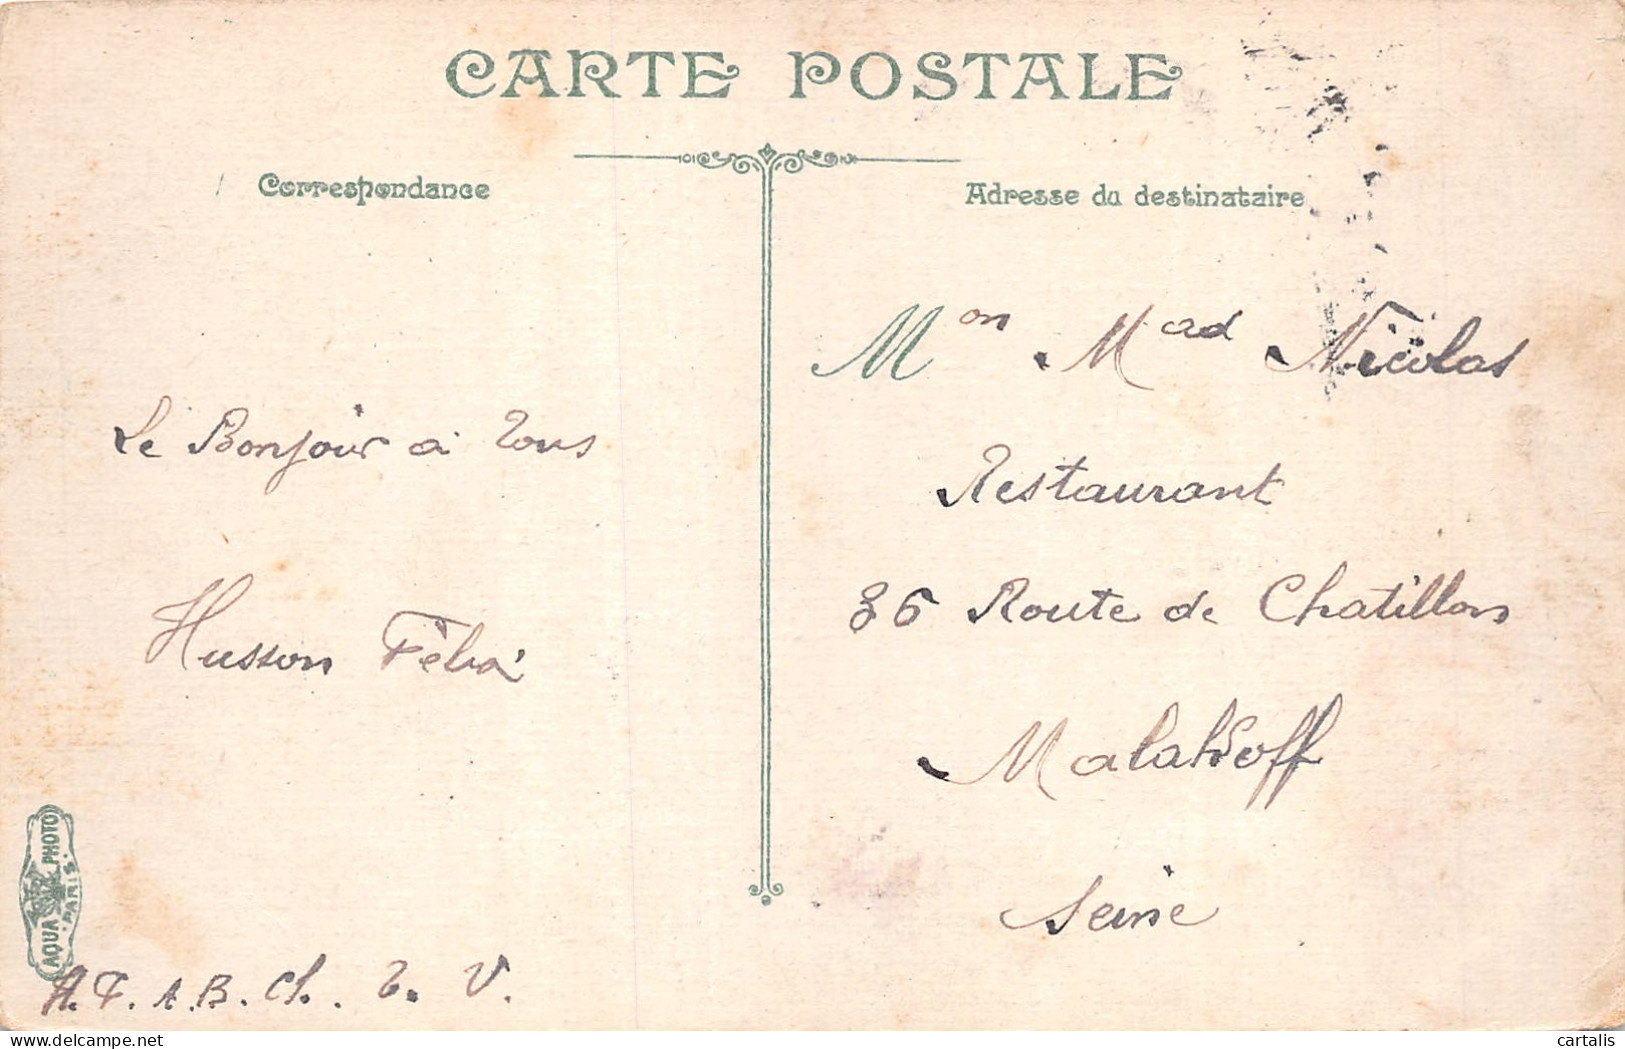 CARTE POSTALE
Correspondance
Adresse du destinataire
Le Bonjour à Tous
Husson Félix
H. F. A. B. Ch. T. V.
Mon Mad Nicolas
Restaurant
86 Route de Chatillon
Malakoff
Seine
AQUA PHOTO
PARIS
delcampe.net
cartalis